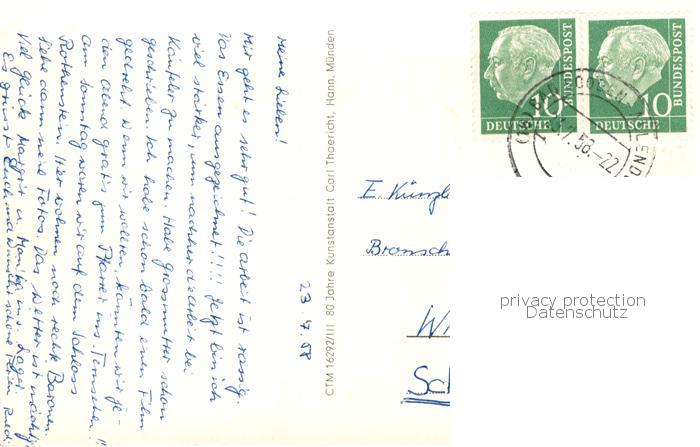 23.7.58
Meine Lieben!
Mir geht es sehr gut! Die Arbeit ist rassig.
Das Essen ausgezeichnet!!!! Jetzt bin ich
viel stärker, um nachher Arbeit bei
Künzler zu machen. Habe Grossmutter schon
geschrieben. Ich habe schon bald einen Film
gedreht. Wenn wir wollten, könnten wir je-
den Abend gratis zum Pfarrer ins Fernsehen!!
am Sonntag waren wir auf dem Schloss
Rothenstein. Hier wohnen noch rechte Baronen.
Siehe dann meine Fotos. Das Wetter ist
Viel Glück Margrit u. Moritz ins Lager.
Es grüsst Euch und wünscht schöne Ferien
CTM 16292/III 80 Jahre Kunstanstalt Carl Thoericht, Hann. Münden
10 DEUTSCHE BUNDESPOST
10 DEUTSCHE BUNDESPOST
.58.-22
E. Künzl
Bronsch
W
Sc
privacy protection
Datenschutz